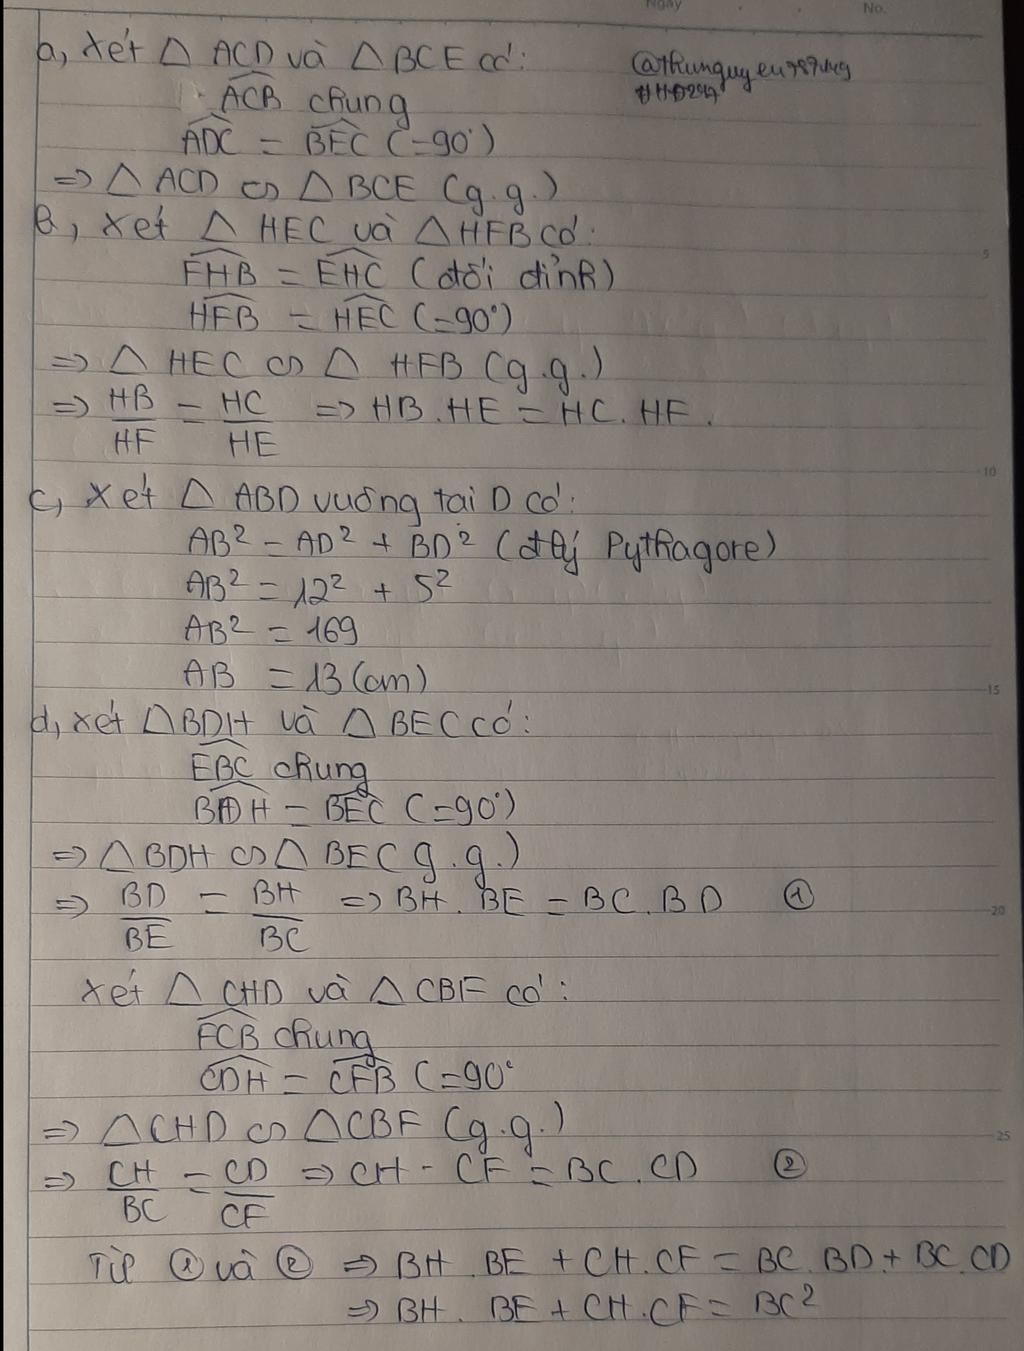 Ngày No.
a, Xét △ ACD và △ BCE có:
@thunguyen787ung
ACB chung
ADC = BEC (=90°)
=> △ ACD ∽ △ BCE (g.g.)
b, Xét △ HEC và △ HFB có:
FHB = EHC (đối đỉnh)
HFB = HEC (=90°)
5
=> △ HEC ∽ △ HFB (g.g.)
=> HB/HF = HC/HE => HB.HE = HC.HF.
10
c, Xét △ ABD vuông tại D có:
AB² = AD² + BD² (đ lý Pythagore)
AB² = 12² + 5²
AB² = 169
AB = 13 (cm)
15
d, xét △BDH và △ BEC có:
EBC chung
BDH = BEC (=90°)
=> △BDH ∽ △ BEC g.g.)
=> BD/BE = BH/BC => BH.BE = BC.BD ①
20
Xét △ CHD và △ CBF có:
FCB chung
CDH = CFB (=90°
=> △CHD ∽ △CBF (g.g.)
25
=> CH/BC = CD/CF => CH - CF = BC.CD ②
Từ ① và ② => BH.BE + CH.CF = BC.BD + BC.CD
=> BH. BE + CH.CF = BC²